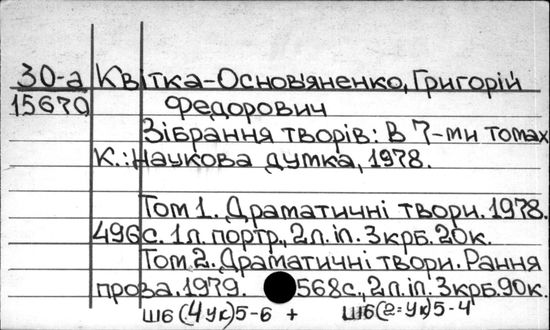 30-а Квітка-Основ'яненко, Григорій
15679 Федорович
Зібрання творів: В 7-ми томах
К.: Наукова думка, 1978.
Том 1. Драматичні твори. 1978.
496с. 1л. портр., 2л. іл. 3крб. 20к.
Том 2. Драматичні твори. Рання
проза. 1979. 568с., 2л. іл. 3крб. 90к.
Ш6(4Ук)5-6 + Ш6(2=Ук)5-4